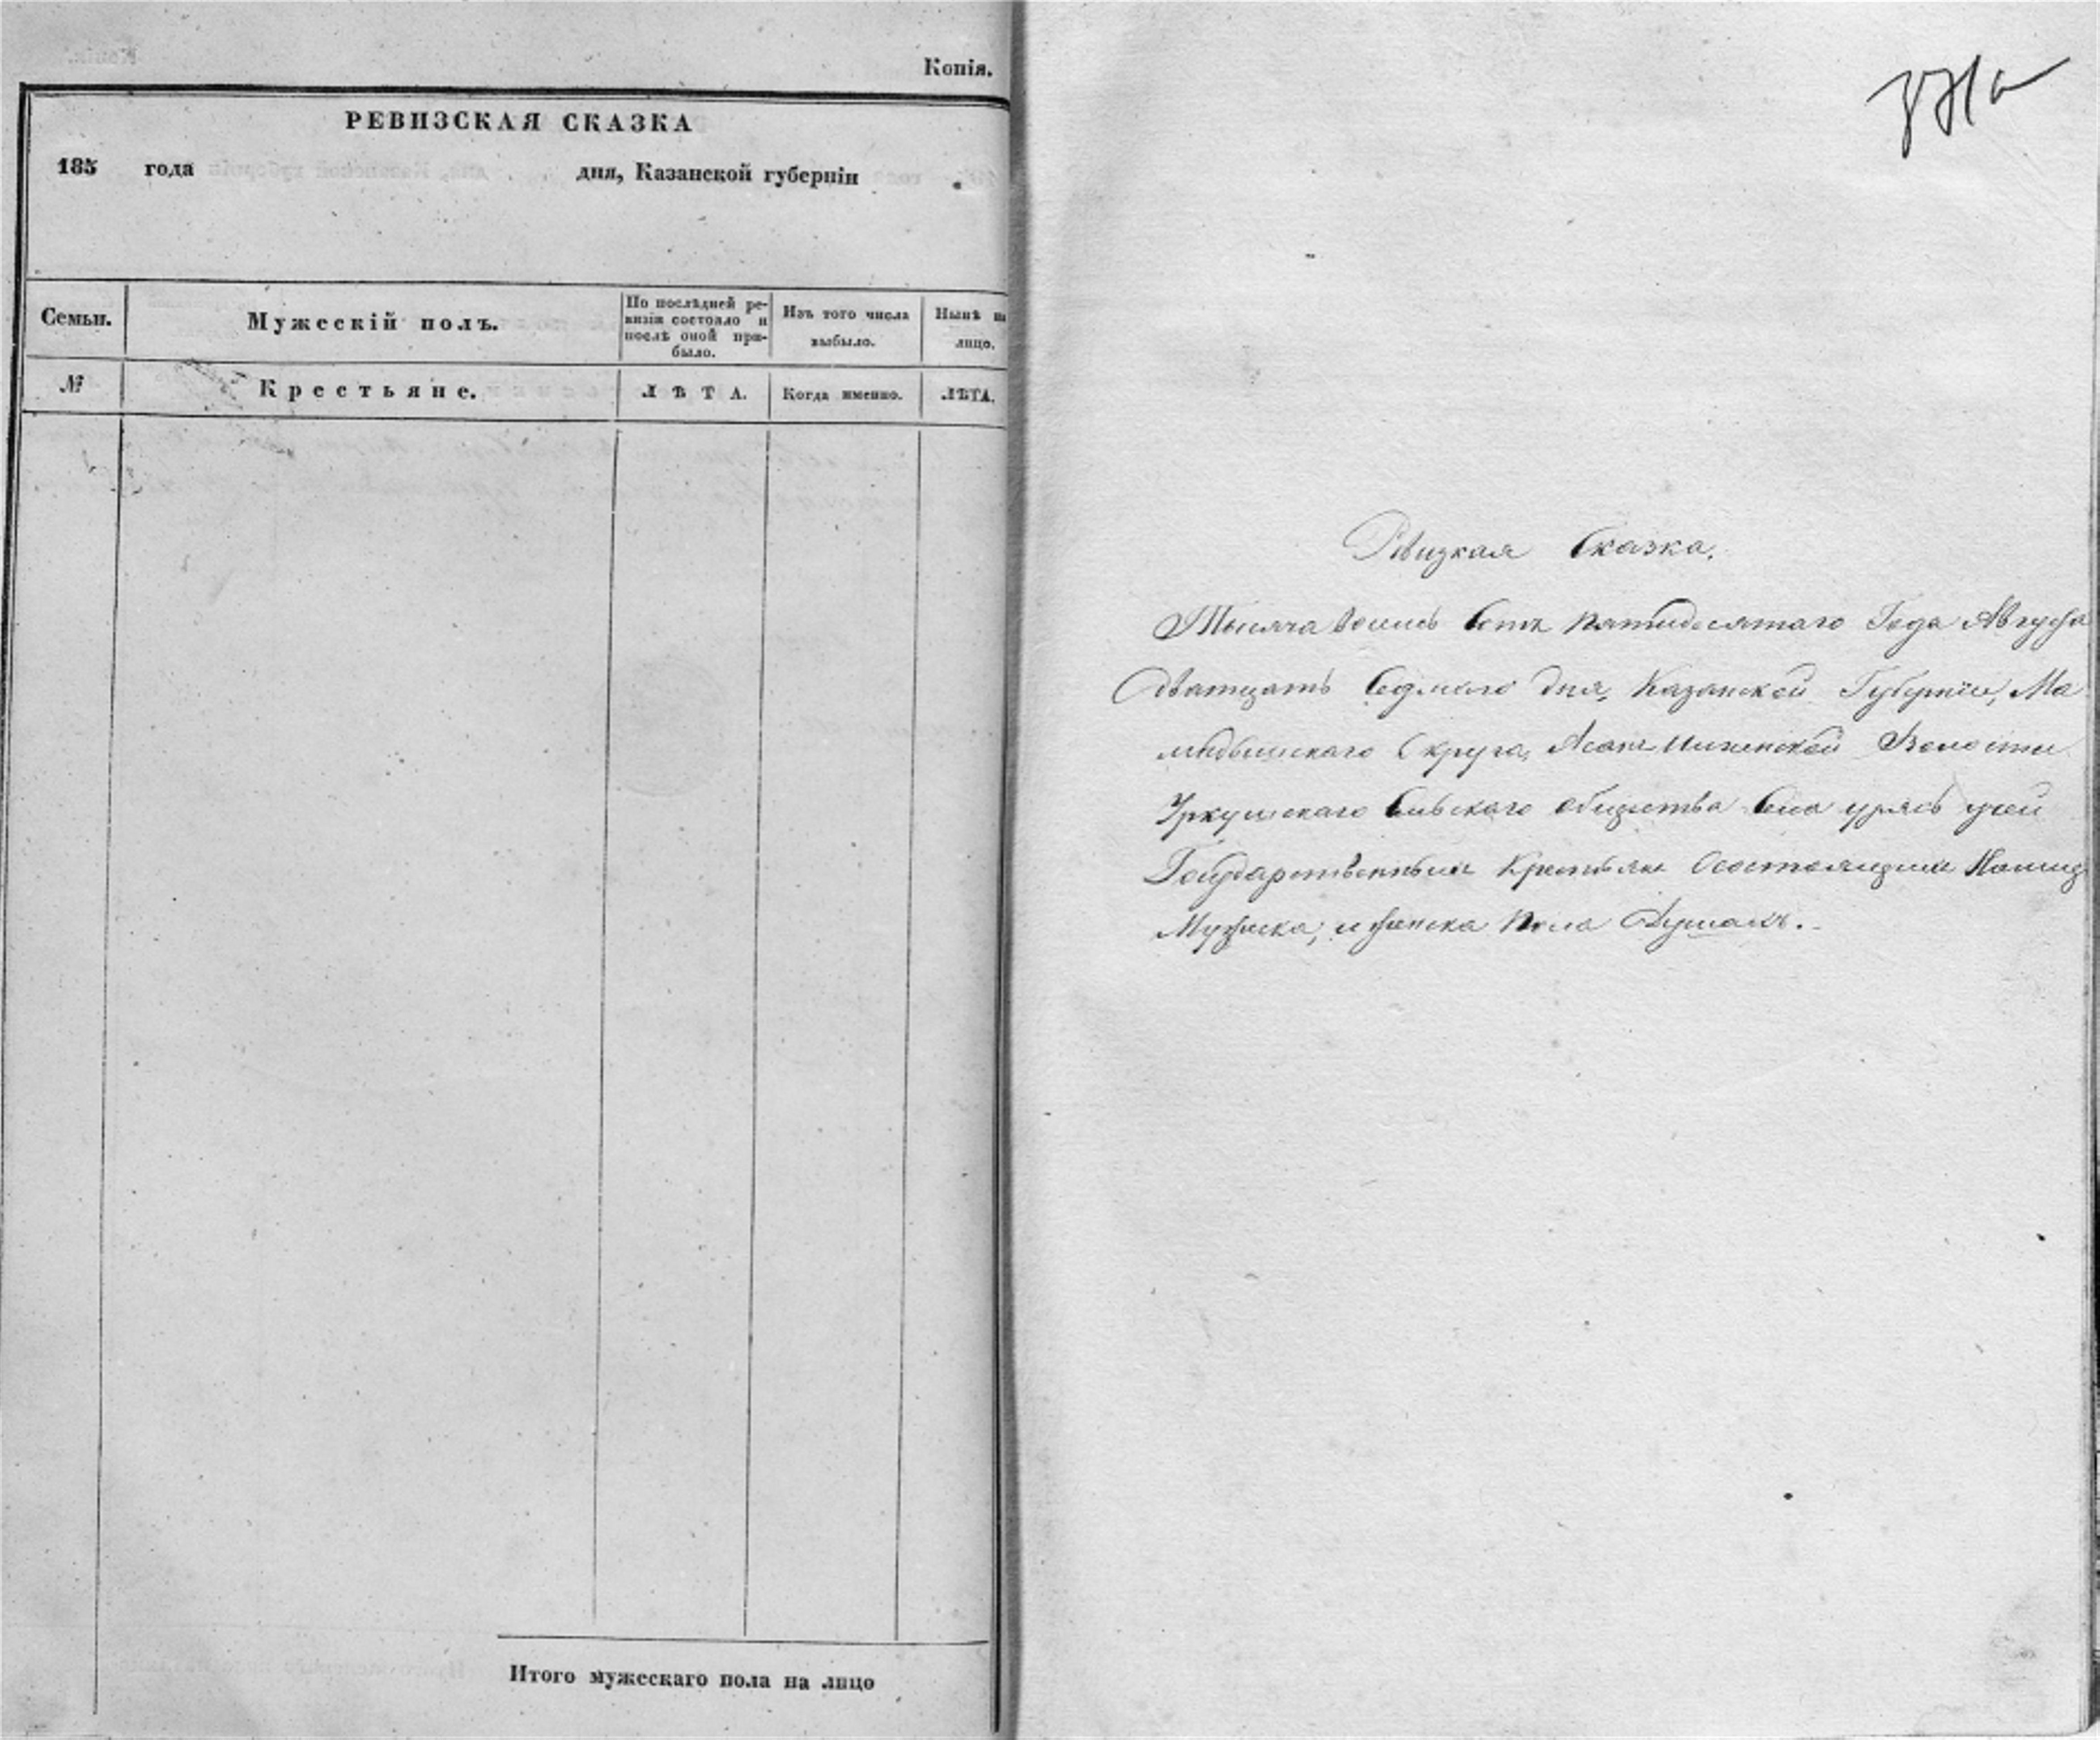 Копія.
РЕВИЗСКАЯ СКАЗКА
185 года дня, Казанской губерніи
Семьи. Мужескій полъ. По послѣдней ре-визіи состояло и послѣ оной при-было. Изъ того числа выбыло. Нынѣ на лицо.
№ Крестьяне. ЛѢТА. Когда именно. ЛѢТА.
Итого мужескаго пола на лицо
Ревизкая Сказка.
Тысяча восемь сотъ пятидесятаго Года Августа
Дватцать седмого дня, Казанской Губерніи, Ма
мадышскаго Округа, Волости
Уркушскаго Сельскаго общества Села урясь учей
Государственныхъ Крестьянъ Осостоящихъ Налицо
Мужеска, и женска пола Душахъ.